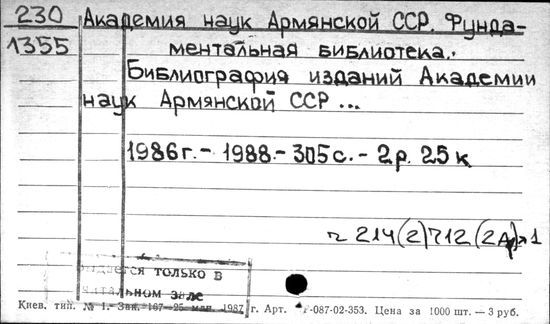 230
1355
Академия наук Армянской ССР. Фунда-
ментальная библиотека.
Библиография изданий Академии
наук Армянской ССР ...
1986г. - 1988. - 305с. - 2р. 25к
ч 214(2)712(2Ар)
ТОЛЬКО В
ЗАЛЕ
Киев. тип. № 1. Зак. 167—25 1987 г. Арт. Г-087-02-353. Цена за 1000 шт. — 3 руб.